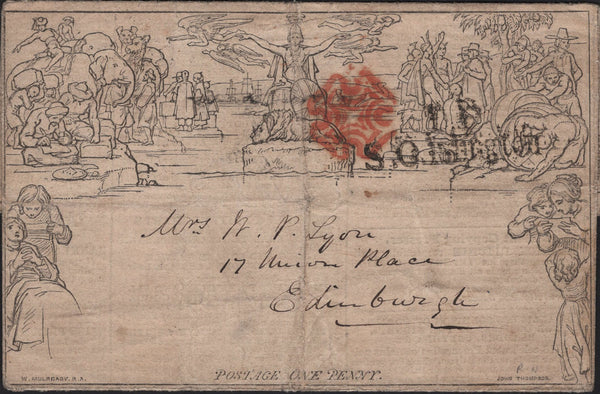 1 P
S.O. Islington
Mrs W. P. Lyon
17 Union Place
Edinburgh
POSTAGE ONE PENNY.
W. MULREADY. R.A.
JOHN THOMPSON